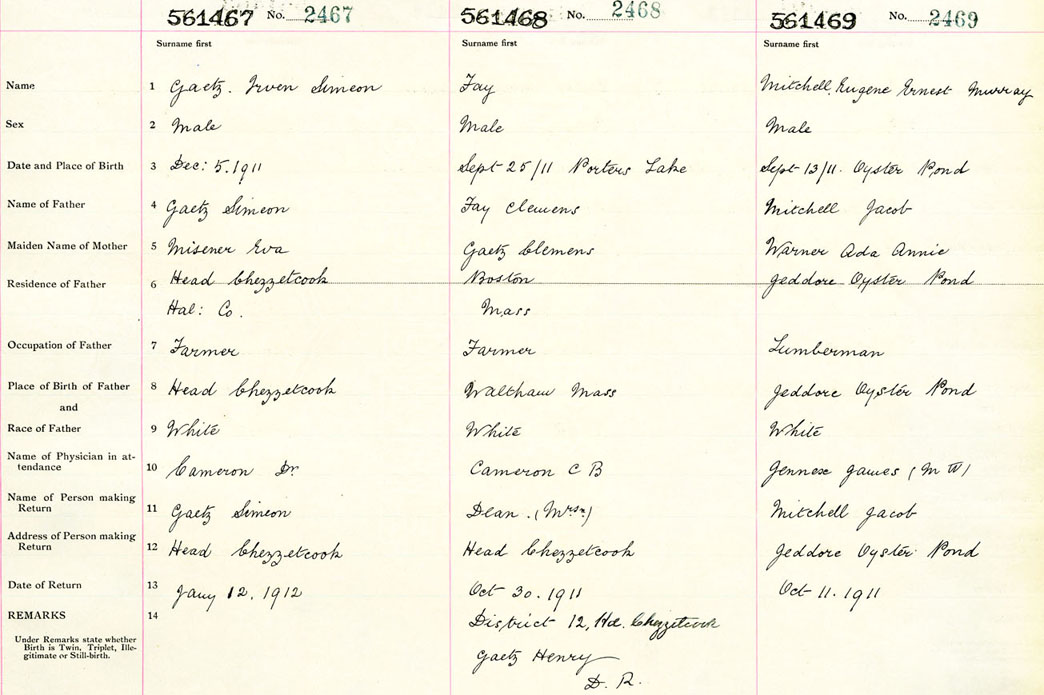 561467 No. 2467 561468 No. 2468 561469 No. 2469
Surname first Surname first Surname first
Name 1 Gaetz. Irven Simeon Fay Mitchell, Eugene Ernest Murray
Sex 2 Male Male Male
Date and Place of Birth 3 Dec: 5. 1911 Sept 25/11 Porters Lake Sept 13/11. Oyster Pond
Name of Father 4 Gaetz Simeon Fay Clemens Mitchell Jacob
Maiden Name of Mother 5 Misener Eva Gaetz Clemens Warner Ada Annie
Residence of Father 6 Head Chezzetcook Boston Jeddore Oyster Pond
Hal: Co. Mass
Occupation of Father 7 Farmer Farmer Lumberman
Place of Birth of Father 8 Head Chezzetcook Waltham Mass Jeddore Oyster Pond
and
Race of Father 9 White White White
Name of Physician in at-
tendance 10 Cameron Dr Cameron C B Jennex James (M W)
Name of Person making
Return 11 Gaetz Simeon Dean. Mitchell Jacob
Address of Person making
Return 12 Head Chezzetcook Head Chezzetcook Jeddore Oyster Pond
Date of Return 13 Jany 12. 1912 Oct 30. 1911 Oct 11. 1911
REMARKS 14 District 12, Hd. Chezzetcook
Under Remarks state whether
Birth is Twin, Triplet, Ille-
gitimate or Still-birth. Gaetz Henry
D. R.